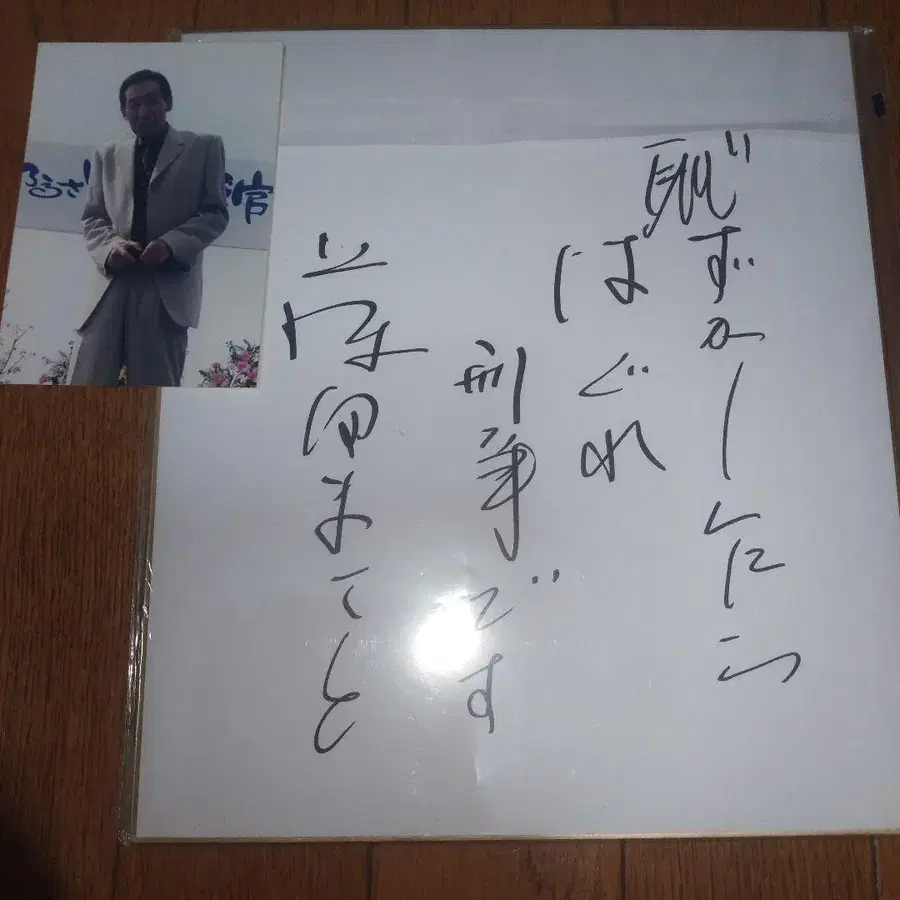 恥ずかし乍ら
はぐれ
刑事です
藤田まこと